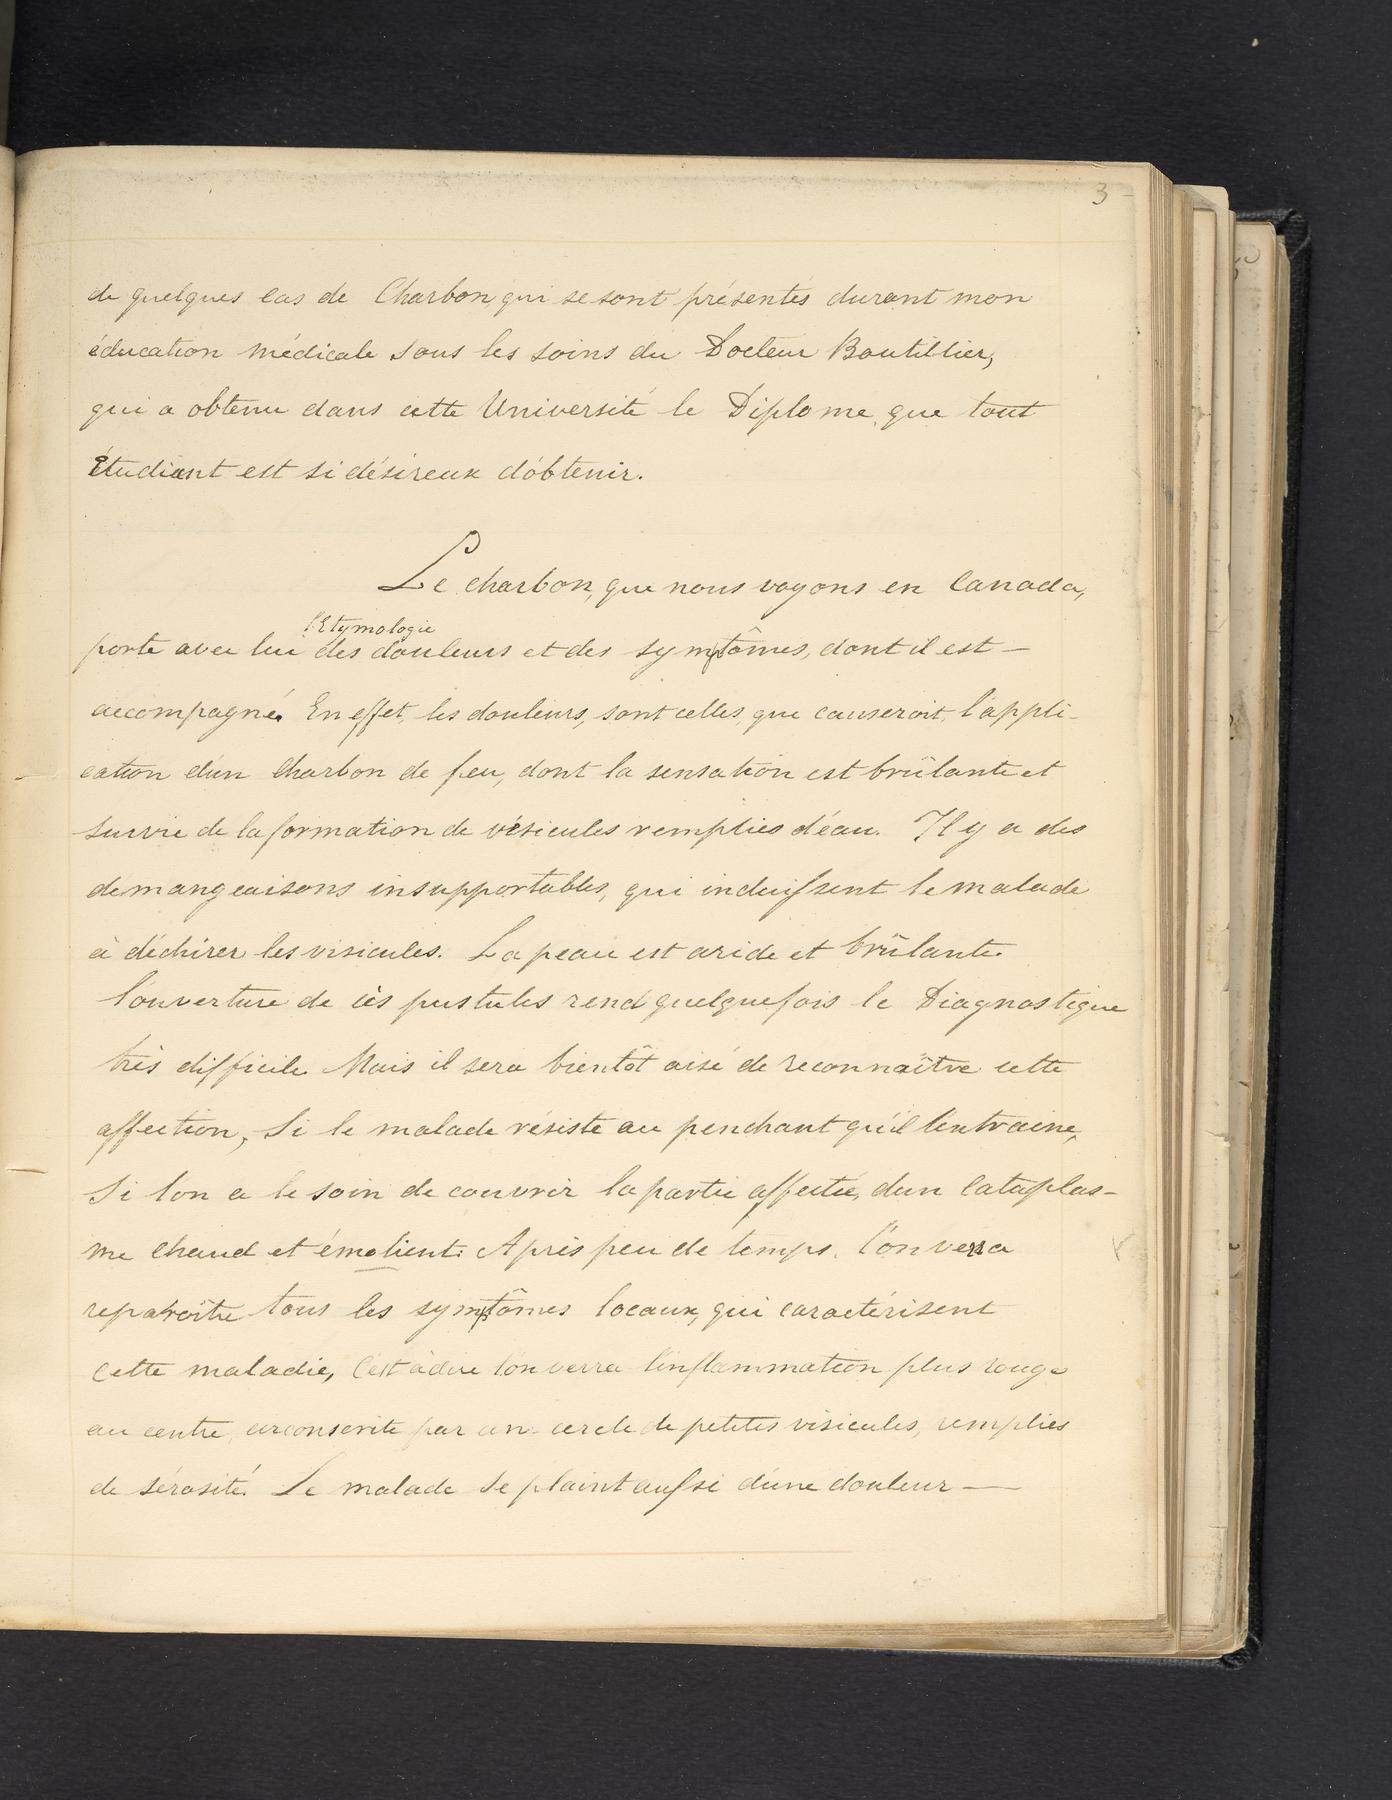 3
de quelques cas de Charbon, qui se sont présentés durant mon
éducation médicale sous les soins du Docteur Boutillier,
qui a obtenu dans cette Université le Diplome, que tout
étudiant est si désireux d'obtenir.
Le charbon, que nous voyons en Canada,
l'Etymologie
porte avec lui des douleurs et des symptômes, dont il est —
accompagné. En effet, les douleurs, sont celles, que causeroit, l'appli-
cation d'un Charbon de feu, dont la sensation est brûlante et
suivie de la formation de vésicules remplies d'eau. Il y a des
demangeaisons insupportables, qui induissent le malade
à déchirer les visicules. La peau est aride et brûlante.
l'ouverture de ces pustules rend quelquefois le Diagnostique
très difficile. Mais il sera bientôt aisé de reconnaître cette
affection, Si le malade résiste au penchant qu'il l'entraine,
Si l'on a le soin de couvrir la partie affectée, d'un Cataplas-
me Chaud et émolient. Après peu de temps, l'on verra
reparoitre tous les symptômes locaux, qui caractérisent
cette maladie, C'est à dire l'on verra l'inflammation plus rouge
au centre, circonscrite par un cercle de petites visicules, remplies
de sérosité. Le malade se plaint aussi d'une douleur —